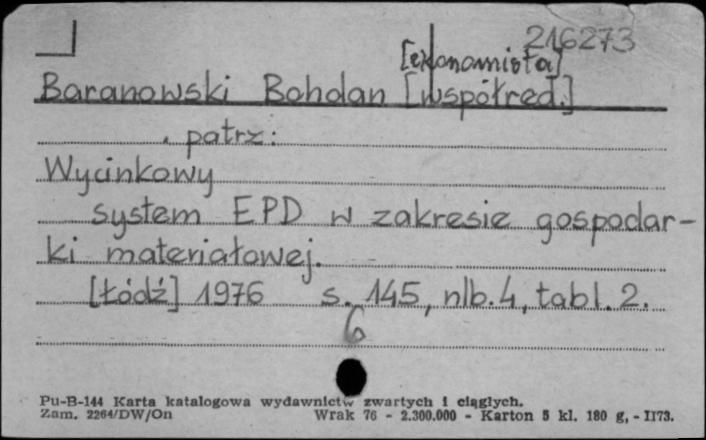 216273
[ekonomista]
Baranowski Bohdan [współred.]
patrz:
Wycinkowy
system EPD w zakresie gospodar-
ki materiałowej.
[Łódź] 1976 s. 145, nlb. 4, tabl. 2.
6
Pu-B-144 Karta katalogowa wydawnictw zwartych i ciągłych.
Zam. 2264/DW/On Wrak 76 - 2.300.000 - Karton 5 kl. 180 g, - II73.